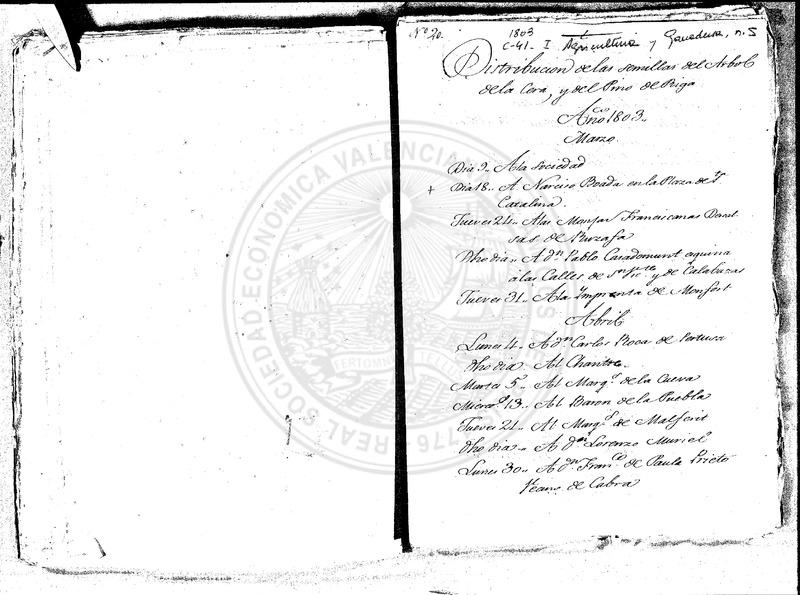 Nº 20.
1803
C-41. I Agricultura y Ganaderia, n. 5
Distribucion de las semillas del Arbol
de la Cera, y del Pino de Riga
Año 1803.,
Marzo.
Dia 9., A la Sociedad
+ Dia 18., A Narciso Boada en la Plaza de Sta
Catalina.
Jueves 24., A las Monjas Franciscanas Descal
sas de Ruzafa
Dho dia., A Dn Pablo Casadomunt esquina
á las Calles de Sn Victe y de Calabazas
Jueves 31., A la Imprenta de Monfort
Abril
Lunes 4., A Dn Carlos Roca de Pertusa
dho dia Al Chantre.
Martes 5., Al Margs de la Cueva
Miercos 13., Al Baron de la Puebla
Jueves 21., Al Margs de Malferit
dho dia., A Dn Lorenzo Muriel
Lunes 30., A Dn Franco de Paula Prieto
de Cabra
REAL SOCIEDAD ECONOMICA VALENCIANA
1776